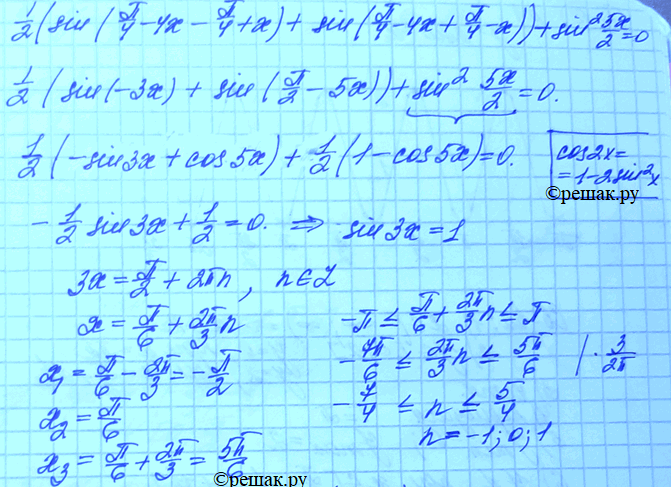 1/2(sin(π/4-4x-π/4+x)+sin(π/4-4x+π/4-x))+sin² 5x/2=0
1/2(sin(-3x)+sin(π/2-5x))+sin² 5x/2=0.
1/2(-sin3x+cos5x)+1/2(1-cos5x)=0.
cos2x=
=1-2sin²x
©решак.ру
-1/2 sin3x+1/2=0. ⇒ sin3x=1
3x=π/2+2πn, n∈Z
x=π/6+2π/3 n
x₁=π/6-2π/3=-π/2
x₂=π/6
x₃=π/6+2π/3=5π/6
-π≤π/6+2π/3 n≤π
-7π/6≤2π/3 n≤5π/6 |·3/2π
-7/4≤n≤5/4
n=-1;0;1
©решак.ру